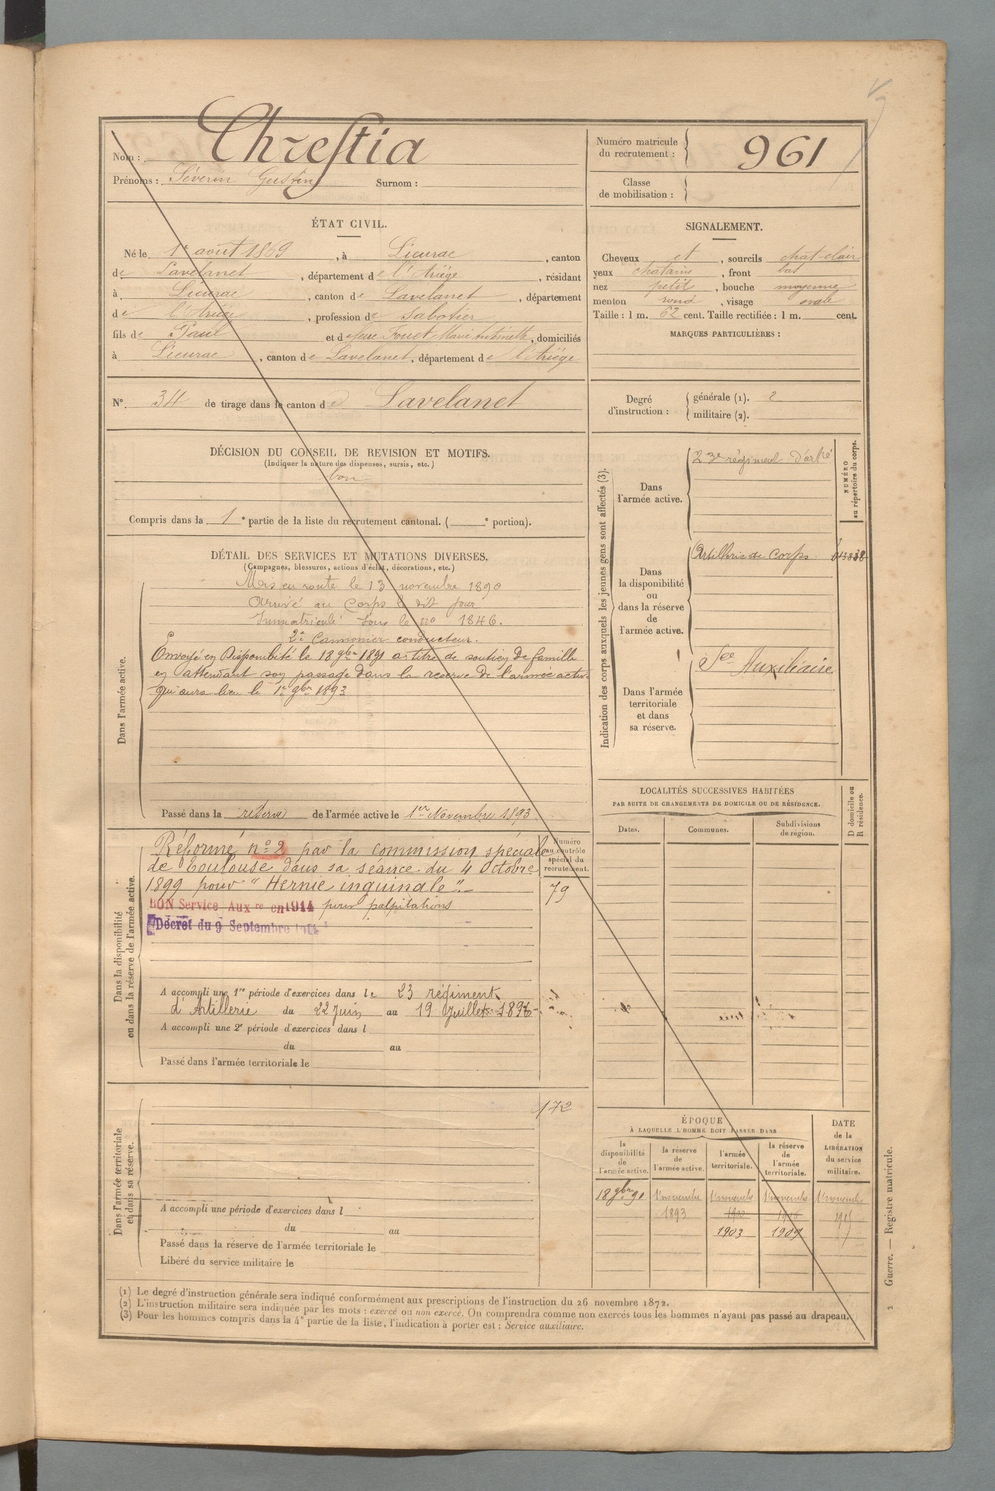 Nom : Chrestia
Prénoms : Séverin Gustin Surnom :
Numéro matricule du recrutement : 961
Classe de mobilisation :
ÉTAT CIVIL.
Né le 1er août 1869, à Lieurac, canton
de Lavelanet, département de l'Ariége, résidant
à Lieurac, canton de Lavelanet, département
de l'Ariége, profession de Sabotier
fils de Paul et de Marie Antoinette, domiciliés
à Lieurac, canton de Lavelanet, département de l'Ariége
SIGNALEMENT.
Cheveux et, sourcils chat-clair
yeux chatains, front bas
nez petit, bouche moyenne
menton rond, visage ovale
Taille : 1 m. 62 cent. Taille rectifiée : 1 m. cent.
MARQUES PARTICULIÈRES :
No 34 de tirage dans le canton de Lavelanet
Degré d'instruction : générale (1). 2
militaire (2).
DÉCISION DU CONSEIL DE REVISION ET MOTIFS.
(Indiquer la nature des dispenses, sursis, etc.)
bon
Compris dans la 1e partie de la liste du recrutement cantonal. (e portion).
DÉTAIL DES SERVICES ET MUTATIONS DIVERSES.
(Campagnes, blessures, actions d'éclat, décorations, etc.)
Dans l'armée active.
Mis en route le 13 novembre 1890
Arrivé au Corps le dit jour
Immatriculé sous le no 1846.
2e Cannonier conducteur.
Envoyé en Disponibilité le 18 9bre 1891 a titre de soutien de famille
en attendant son passage dans la reserve de l'armée active
qui aura lieu le 1er 9bre 1893
Passé dans la réserve de l'armée active le 1er Novembre 1893
Indication des corps auxquels les jeunes gens sont affectés (3).
NUMÉRO au répertoire du corps.
Dans l'armée active.
23e régiment d'artie
Dans la disponibilité ou dans la réserve de l'armée active.
Artillerie de Corps
Dans l'armée territoriale et dans sa réserve.
Sce Auxiliaire
LOCALITÉS SUCCESSIVES HABITÉES
PAR SUITE DE CHANGEMENTS DE DOMICILE OU DE RÉSIDENCE.
Dates. Communes. Subdivisions de région. D domicile ou R résidence.
Dans la disponibilité ou dans la réserve de l'armée active.
Numéro au contrôle spécial du recrutement.
79
Réformé no 2 par la commission spéciale
de Toulouse dans sa séance du 4 Octobre
1899 pour "Hernie inguinale".
BON Service Auxre en 1914 pour palpitations
Décret du 9 Septembre 1914
A accompli une 1re période d'exercices dans le 23 régiment
d'Artillerie du 22 Juin au 19 Juillet 1896
A accompli une 2e période d'exercices dans l
du au
Passé dans l'armée territoriale le
Dans l'armée territoriale et dans sa réserve.
172
A accompli une période d'exercices dans l
du au
Passé dans la réserve de l'armée territoriale le
Libéré du service militaire le
ÉPOQUE
À LAQUELLE L'HOMME DOIT PASSER DANS
la disponibilité de l'armée active. la réserve de l'armée active. l'armée territoriale. la réserve de l'armée territoriale. DATE de la LIBÉRATION du service militaire.
18 9bre 91 1er novembre 1er novembre 1er novembre 1er novembre
1893
1903 1909
Guerre. — Registre matricule.
2
(1) Le degré d'instruction générale sera indiqué conformément aux prescriptions de l'instruction du 26 novembre 1872.
(2) L'instruction militaire sera indiquée par les mots : exercé ou non exercé. On comprendra comme non exercés tous les hommes n'ayant pas passé au drapeau.
(3) Pour les hommes compris dans la 4e partie de la liste, l'indication à porter est : Service auxiliaire.